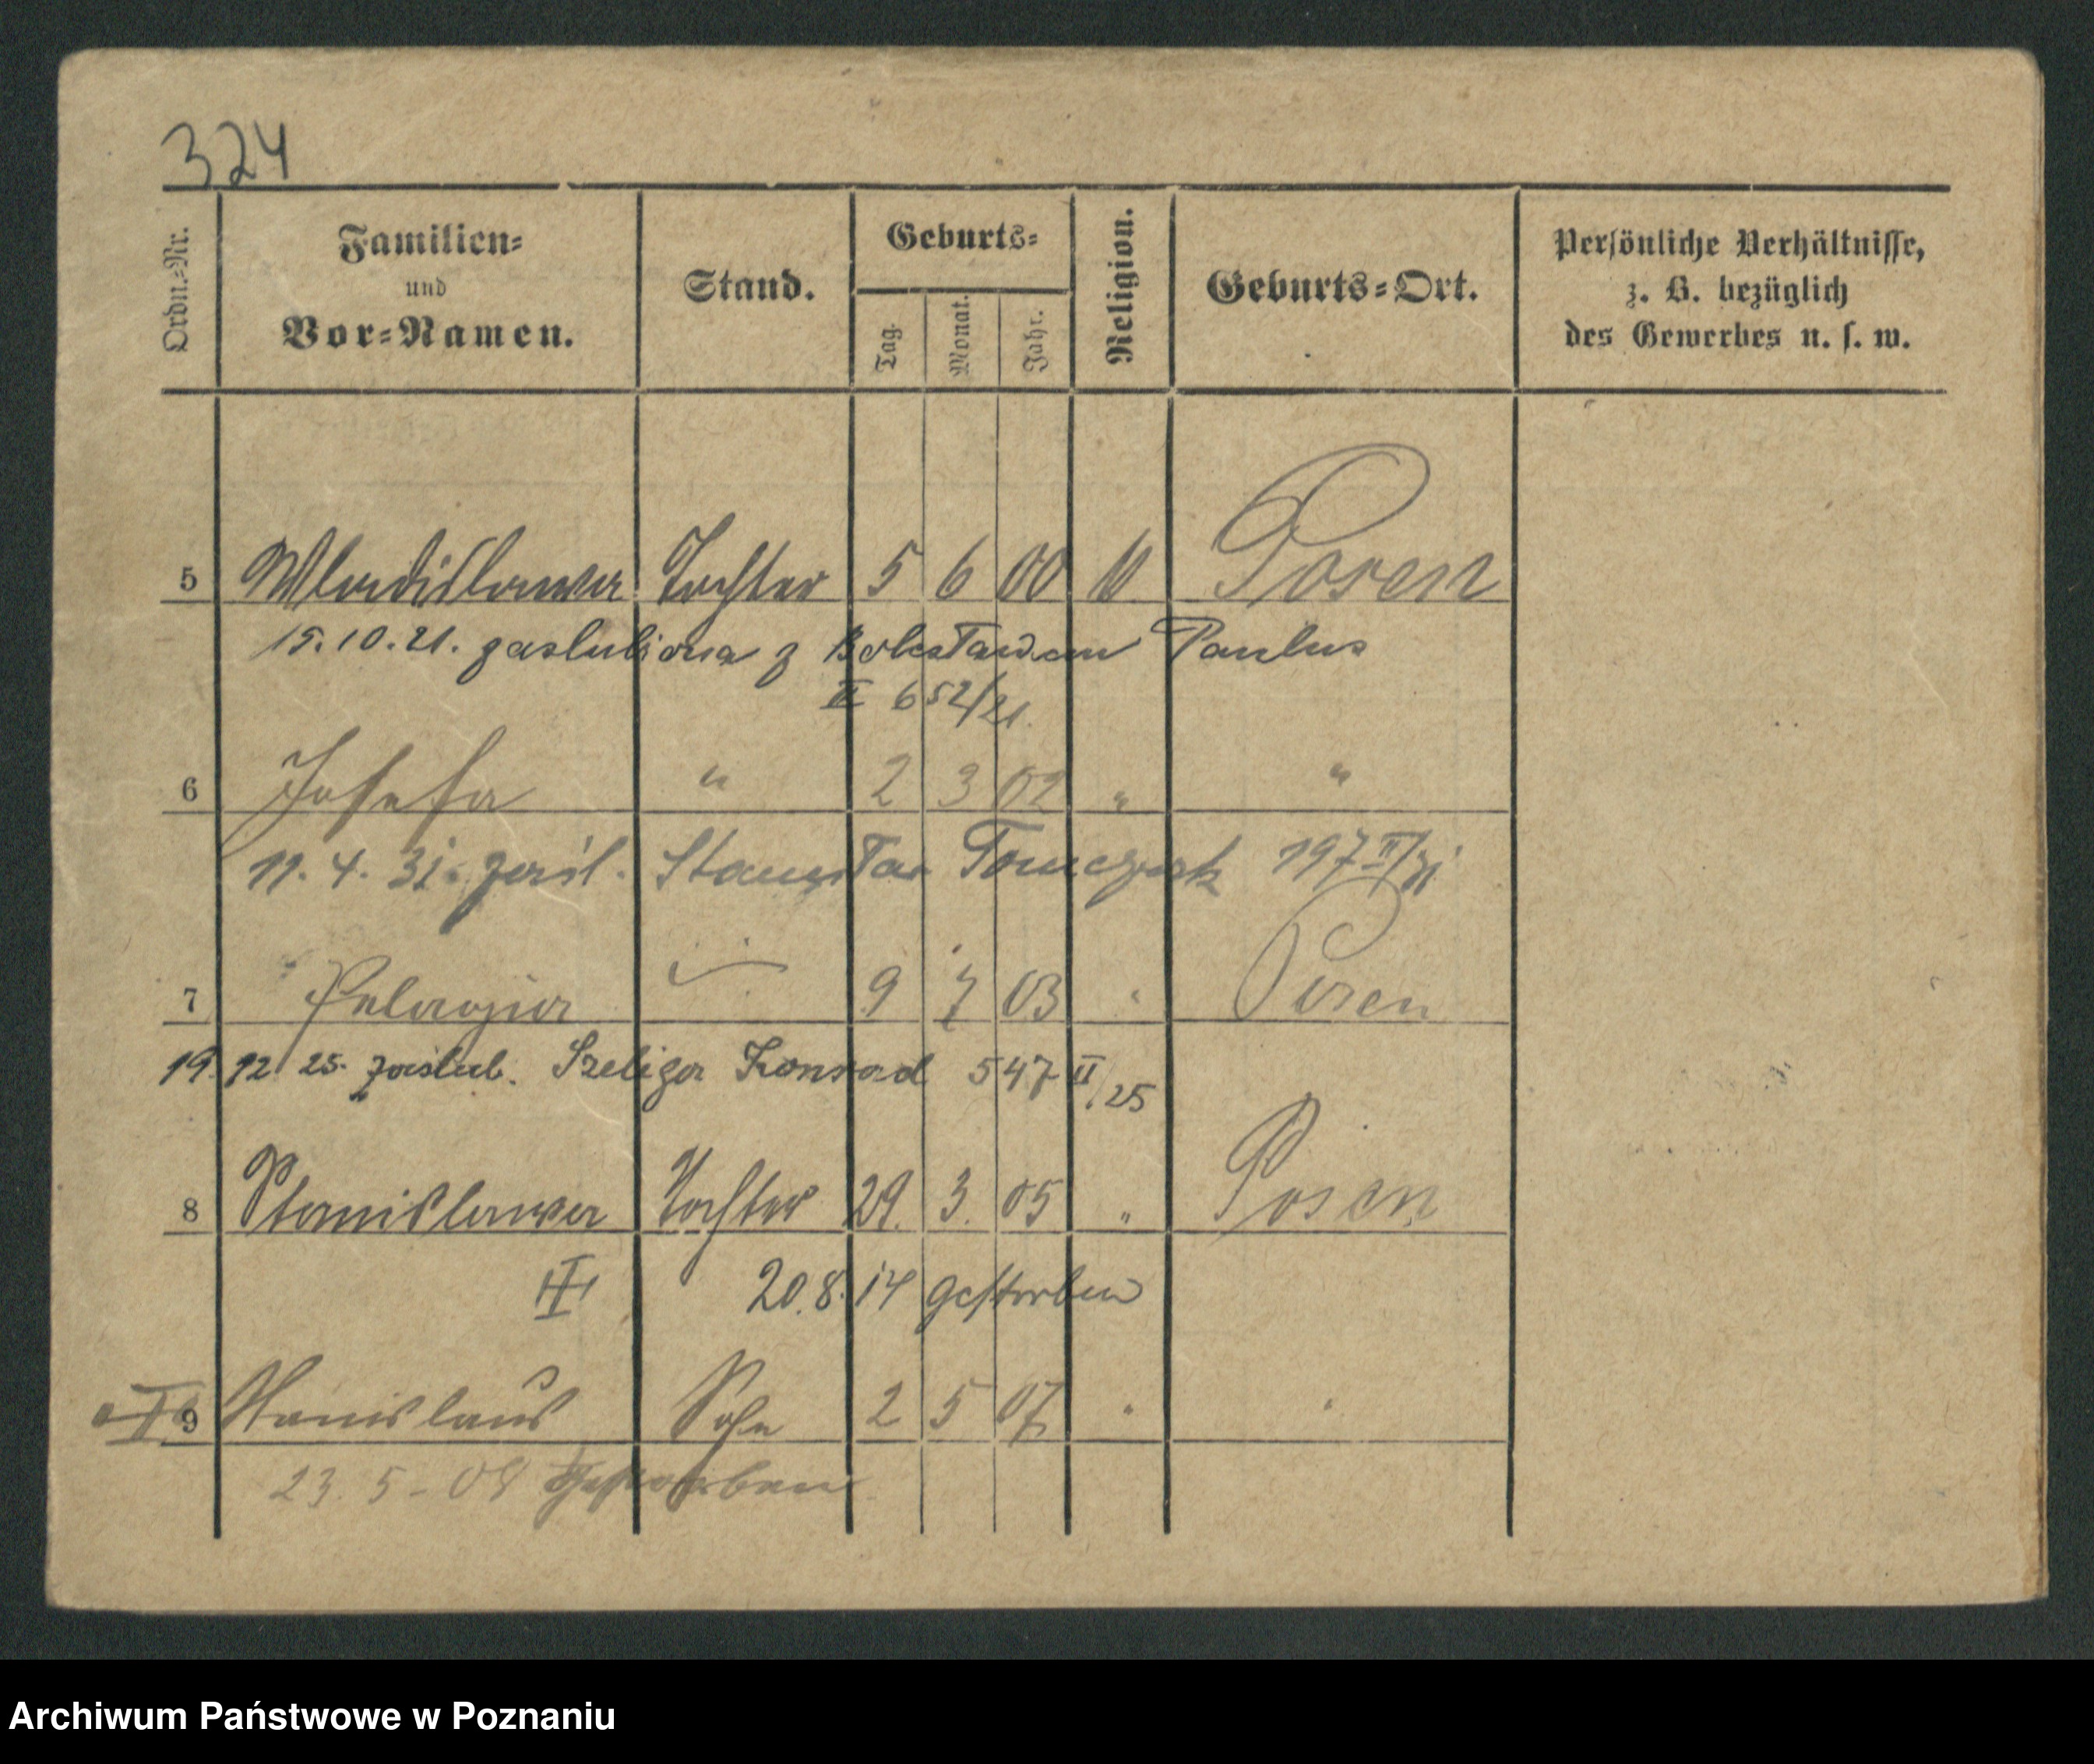 324
Ordn.-Nr. Familien- und Vor-Namen. Stand. Geburts- Tag. Monat. Jahr. Religion. Geburts-Ort. Persönliche Verhältnisse, z. B. bezüglich des Gewerbes u. s. w.
5 Wladislawa Tochter 5 6 00 Posen
15.10.21. zaslubiona z Bolesławem Paulus
II 652/21.
6 Josefa " 2 3 02 " "
11. 4. 31. zaśl. Stanisław Tomczak 197 II/31
7 Pelagia 9 7 03 " Posen
19. 12 25. zaslub. Szeliga Konrad 547 II/25
8 Stanislawa Tochter 29. 3. 05 " Posen
20.8.14 gestorben
9 Stanislaus Sohn 2 5 07 " "
23. 5 - 08 Gestorben
Archiwum Państwowe w Poznaniu